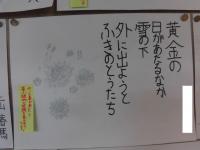 黄金の
日があたるなか
雪の下
外に出ようと
ふきのとうたち